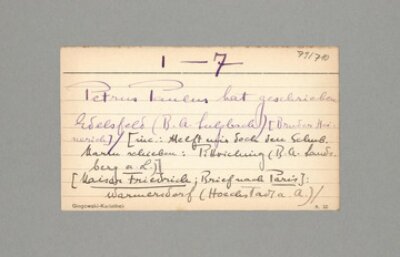 791/790
1 — 7
Petrus Paulus hat geschrieben
Edelsfeld (B.A. Sulzbach) [Bruder Hei-
nerich] / [inc.: Helft mir doch den Schub-
karrn schieben: Pittriching (B.A. Lands-
berg a. L.)]
[Kaiser Friedrich; Brief nach Paris]:
Warmersdorf (Hoechstadt a. A.) /
Glogowski-Karteithek